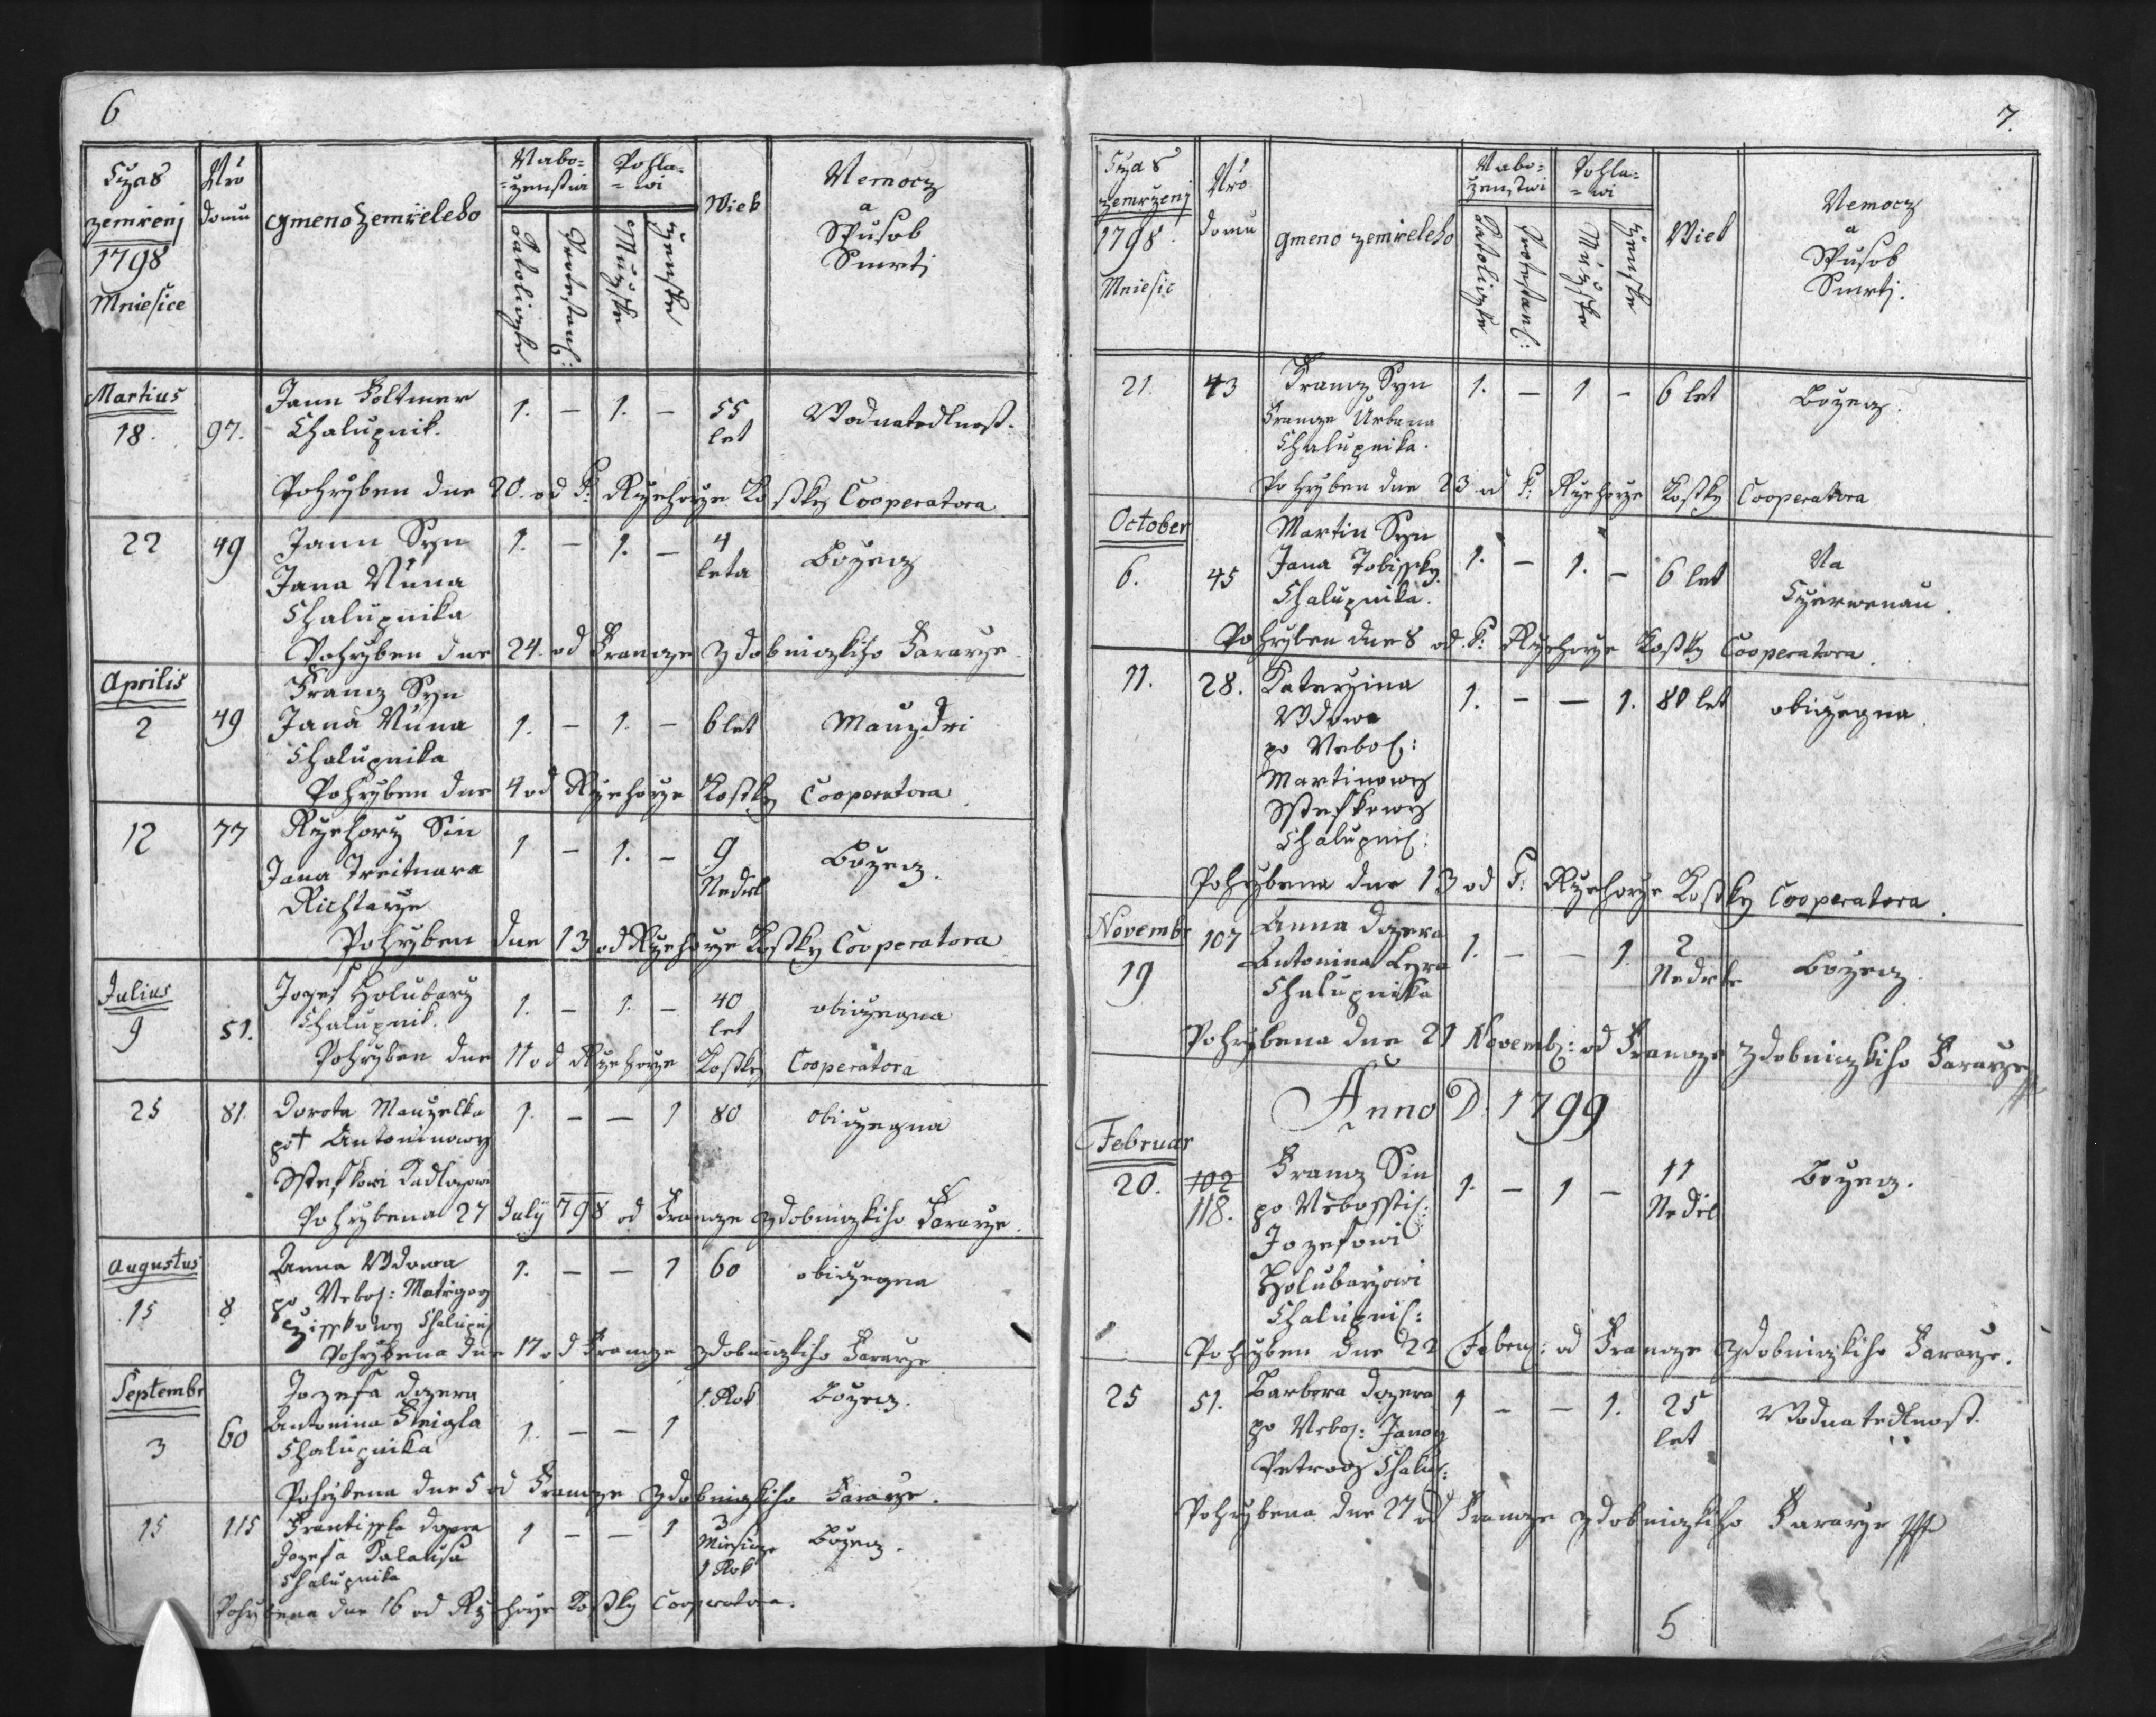 6
Czas
zemrenj
1798
Mniesice
Nro
domu
Gmeno Zemreleho
Nabo=
=zenstwi
Katolizke
Protestans:
Pohla=
=wi
Muzske
Zenske
Wiek
Nemocz
a
Spusob
Smrti
Martius
18.
97.
Jann Foltmer
Chalupnik.
1. — 1. —
55
let
Wodnatedlnost.
Pohrzben dne 20. od P: Rzehorze Kostky Cooperatora
22
49
Jann Syn
Jana Nuna
Chalupnika
1. — 1. —
4
leta
Bozecz
Pohrzben dne 24. od Francze Zdobniczkiho Fararze
Aprilis
2
49
Francz Syn
Jana Nuna
Chalupnika
1. — 1. —
6 let
Pohrzben dne 4 od Rzehorze Kostky Cooperatora
12
77
Rzehorz Sin
Jana Treitnara
Richtarze
1 — 1. —
9
Nedel
Bozecz.
Pohrzben dne 13 od Rzehorze Kostky Cooperatora
Julius
9
51.
Jozef Holubarz
Chalupnik.
1. — 1. —
40
let
obiczegna
Pohrzben dne 11 od Rzehorze Kostky Cooperatora
25
81.
Dorota Manzelka
po † Antoninowy
1. — — 1
80
obiczegna
Pohrzbena 27 July 798 od Francze Zdobniczkiho Fararze.
Augustus
15
8
Anna Wdowa
po Nebos:
1. — — 1
60
obiczegna
Pohrzbena dne 17 od Francze Zdobniczkiho Fararze
Septembr
3
60
Jozefa dczera
Antonina
Chalupnika
1. — — 1
1. Rok
Bozecz.
Pohrzbena dne 5 od Francze Zdobniczkiho Fararze.
15
115
Frantisska dczera
Jozefa
Chalupnika
1 — — 1
3
Miesicze
1 Rok
Bozecz.
Pohrzbena dne 16 od Rzehorze Kostky Cooperatora.
7.
Czas
zemrzenj
1798.
Mniesic
Nro
domu
Gmeno zemreleho
Nabo=
zenstwi
Katolizke
Protestans:
Pohla=
=wi
Muzske
Zenske
Wiek
Nemocz
a
Spusob
Smrti.
21.
43
Francz Syn
Francze Urbana
Chalupnika.
1. — 1 —
6 let
Bozecz.
Pohrzben dne 23 od P: Rzehorze Kostky Cooperatora
October
6.
45
Martin Syn
Jana Tobissky
Chalupnika.
1. — 1. —
6 let
Na
Czerwenau.
Pohrzben dne 8 od P: Rzehorze Kostky Cooperatora.
11.
28.
Katerzina
Wdowa
po Nebos:
Martinowy
Chalupnis:
1. — — 1.
80 let
obiczegna.
Pohrzbena dne 13 od P: Rzehorze Kostky Cooperatora.
Novembr
19
107
Anna dczera
Antonina
Chalupnika
1. — — 1.
2
Nedele
Bozecz.
Pohrzbena dne 21 Novemb: od Francze Zdobniczkiho Fararze
Anno D. 1799
Februar
20.
102
118.
Francz Sin
po Nebosstis:
Jozefowi
Holubarzowi
Chalupnis:
1. — 1 —
11
Nedel
Bozecz.
Pohrzben dne 22 Febru: od Francze Zdobniczkiho Fararze.
25
51.
Barbora dczera
po Nebos: Janowi
Petrow Chalu:
1 — — 1.
25
let
Wodnatedlnost.
Pohrzbena dne 27 od Francze Zdobniczkiho Fararze
5